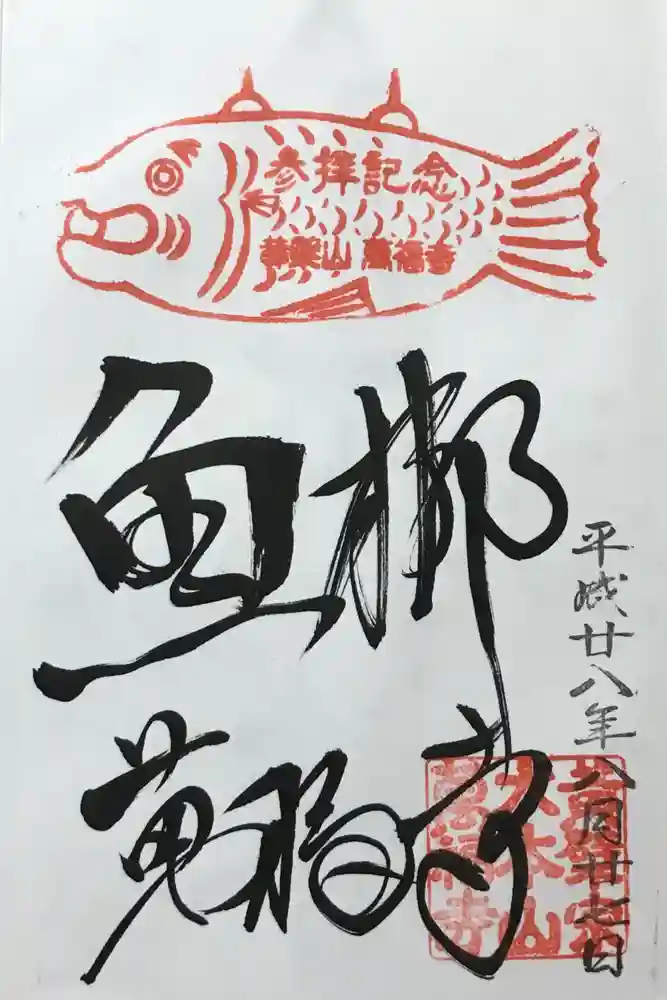 参拝記念
黄檗山 萬福寺
魚梆
萬福寺
平成廿八年八月廿七日
黄檗宗
大本山
萬福寺